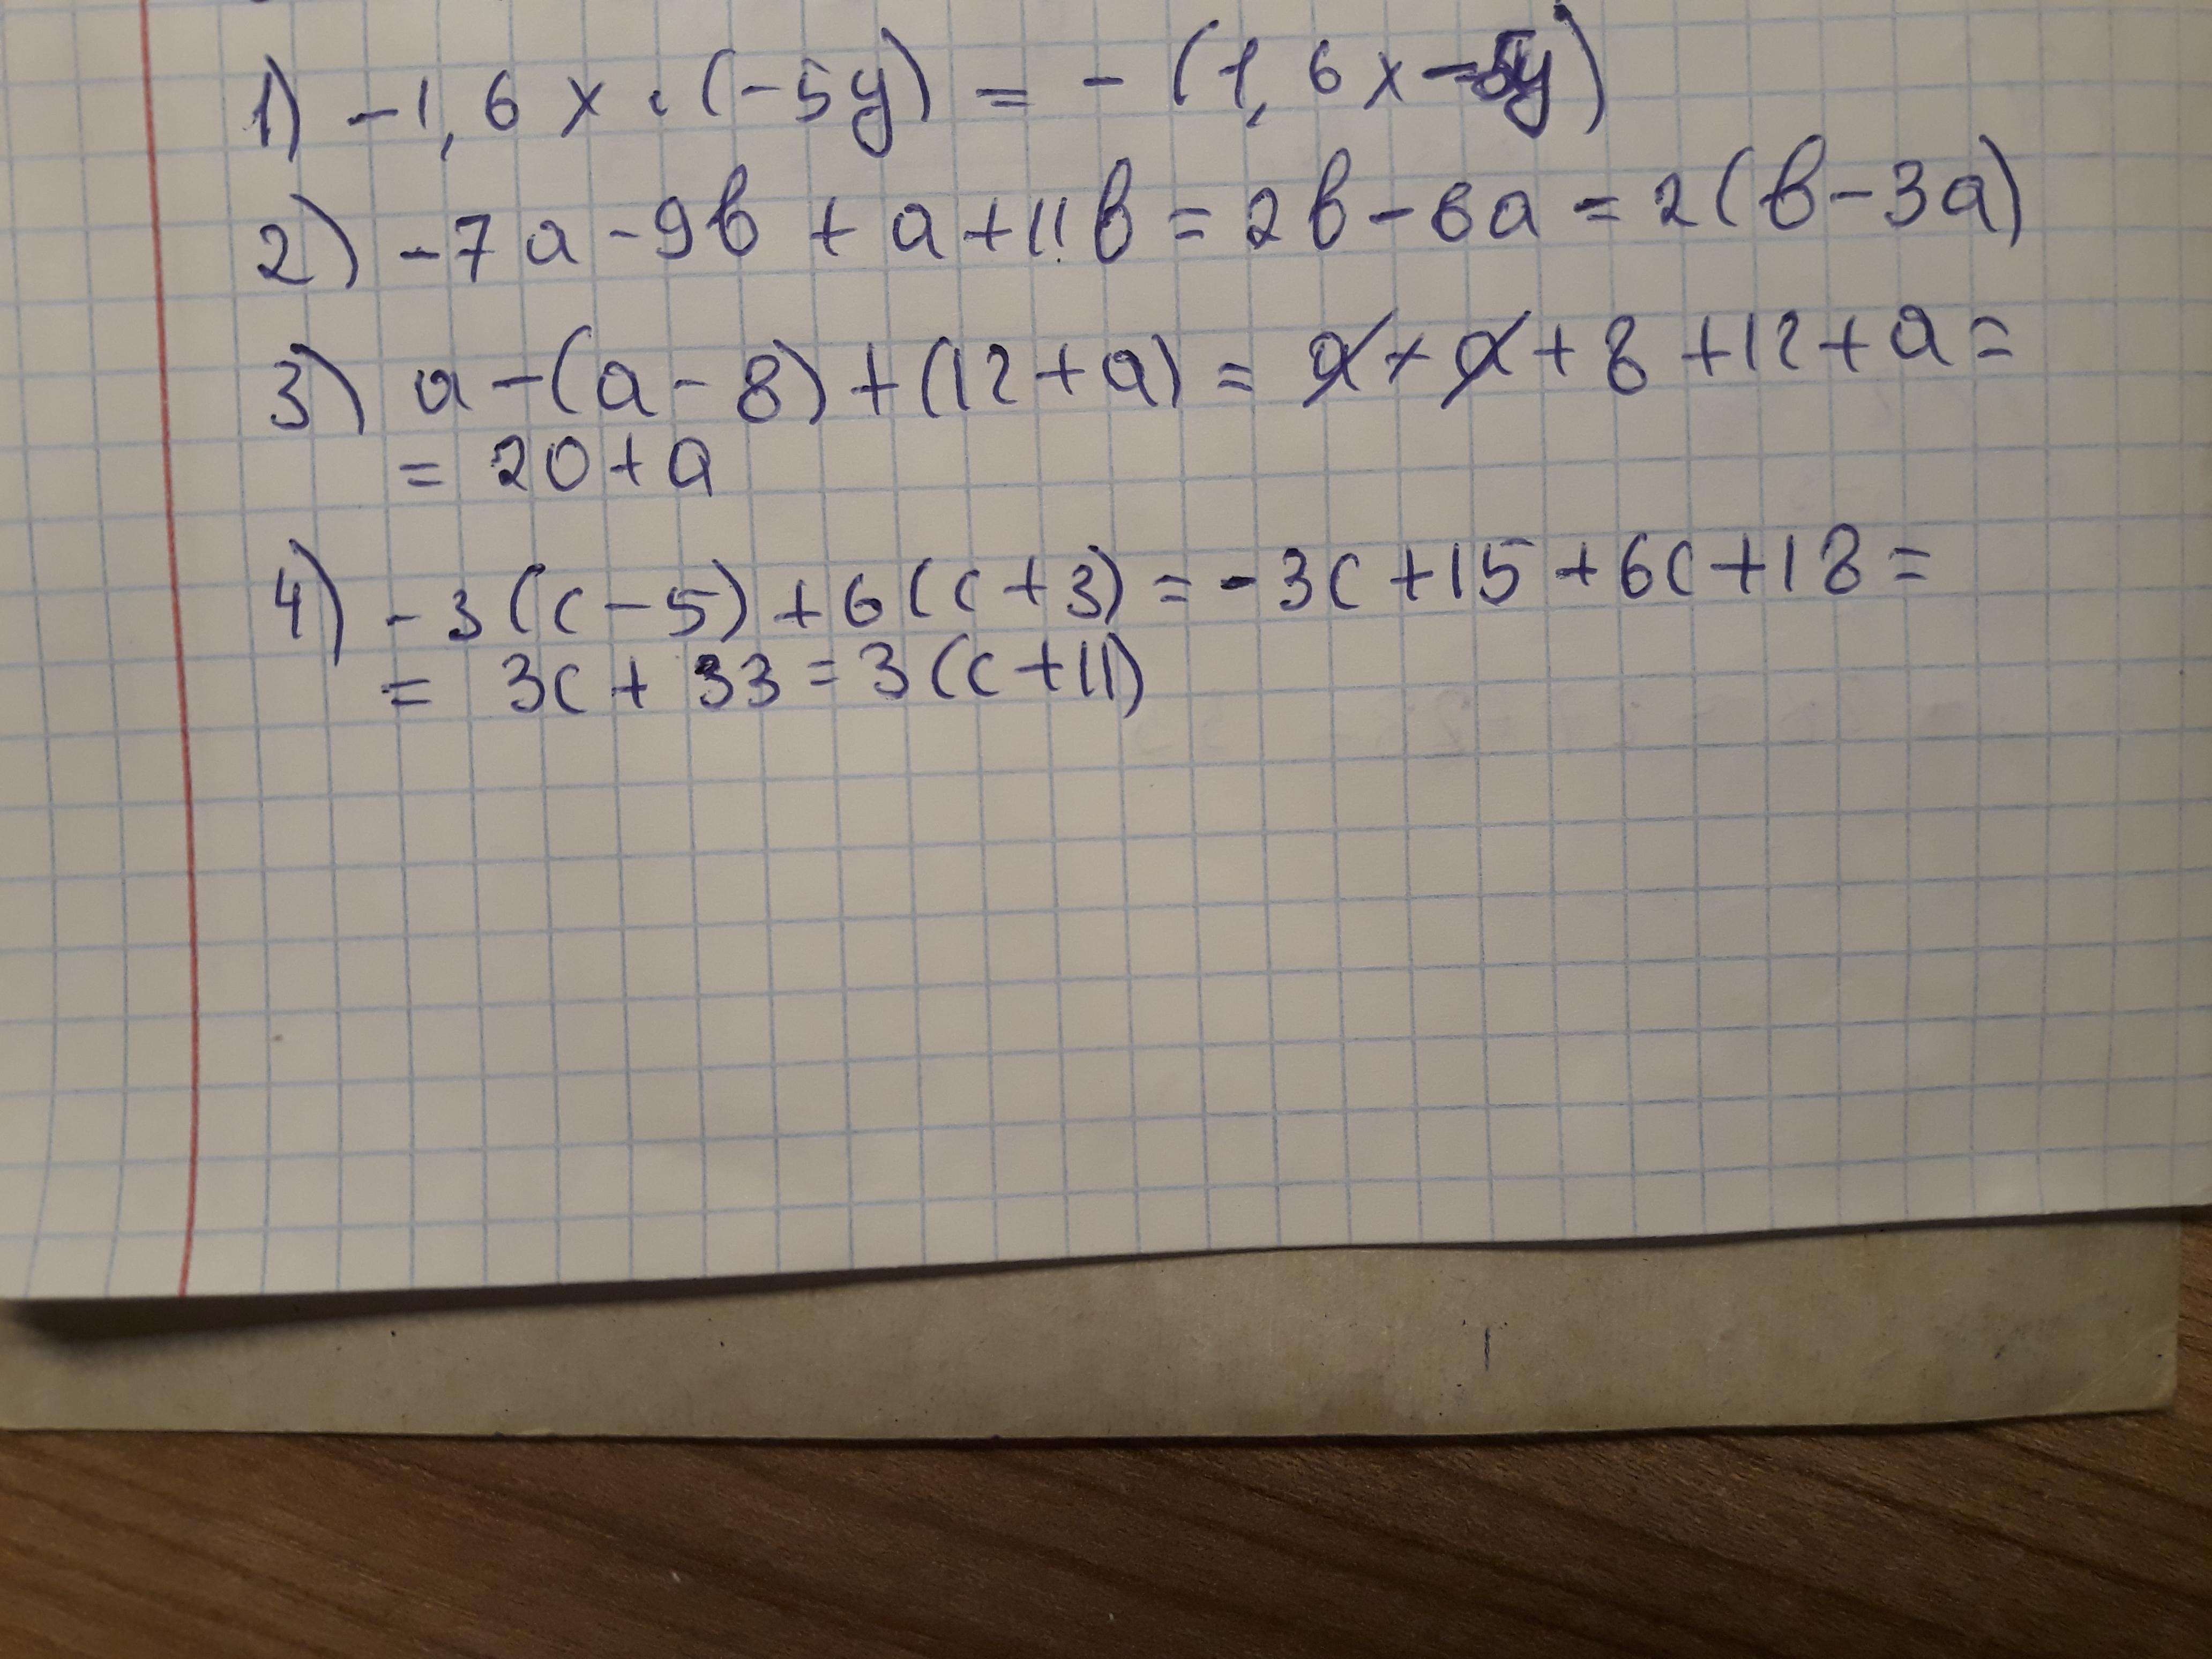 1) -1,6x·(-5y) = -(1,6x-5y)
2) -7a-9b+a+11b = 2b-6a = 2(b-3a)
3) a-(a-8)+(12+a) = a+a+8+12+a =
= 20+a
4) -3(c-5)+6(c+3) = -3c+15+6c+18 =
= 3c+33 = 3(c+11)